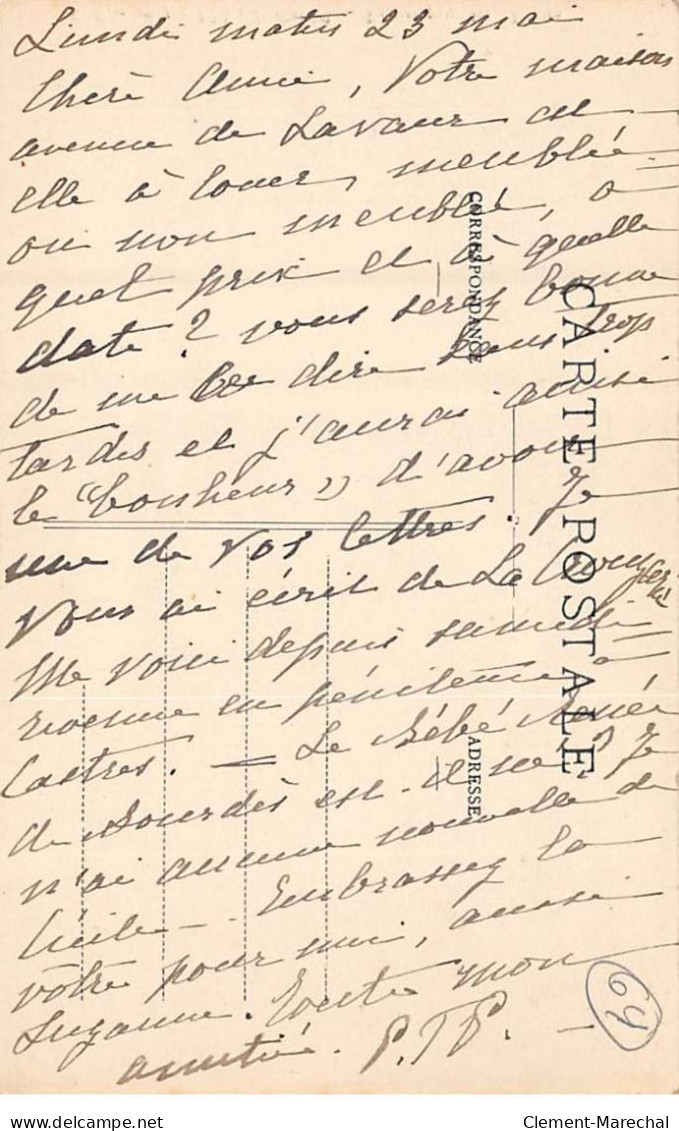 Lundi matin 23 mai
Chère Amie, Votre maison
avenue de Lavaur est
elle à louer, meublée
ou non meublée, à
quel prix et à quelle
date ? vous serez bonne
de me le dire sans trop
tarder et j'aurai aussi
le "bonheur" d'avoir
une de vos lettres. Je
vous ai écrit de La
Me voici depuis samedi
revenue en pénitence à
Castres. — Le Bébé
de est-il né ? Je
n'ai aucune nouvelle de
Cécile —. Embrassez la
vôtre pour moi, aussi
Suzanne. Toute mon
amitié. P.TP. —
CORRESPONDANCE
CARTE POSTALE
ADRESSE
69
Clement-Marechal